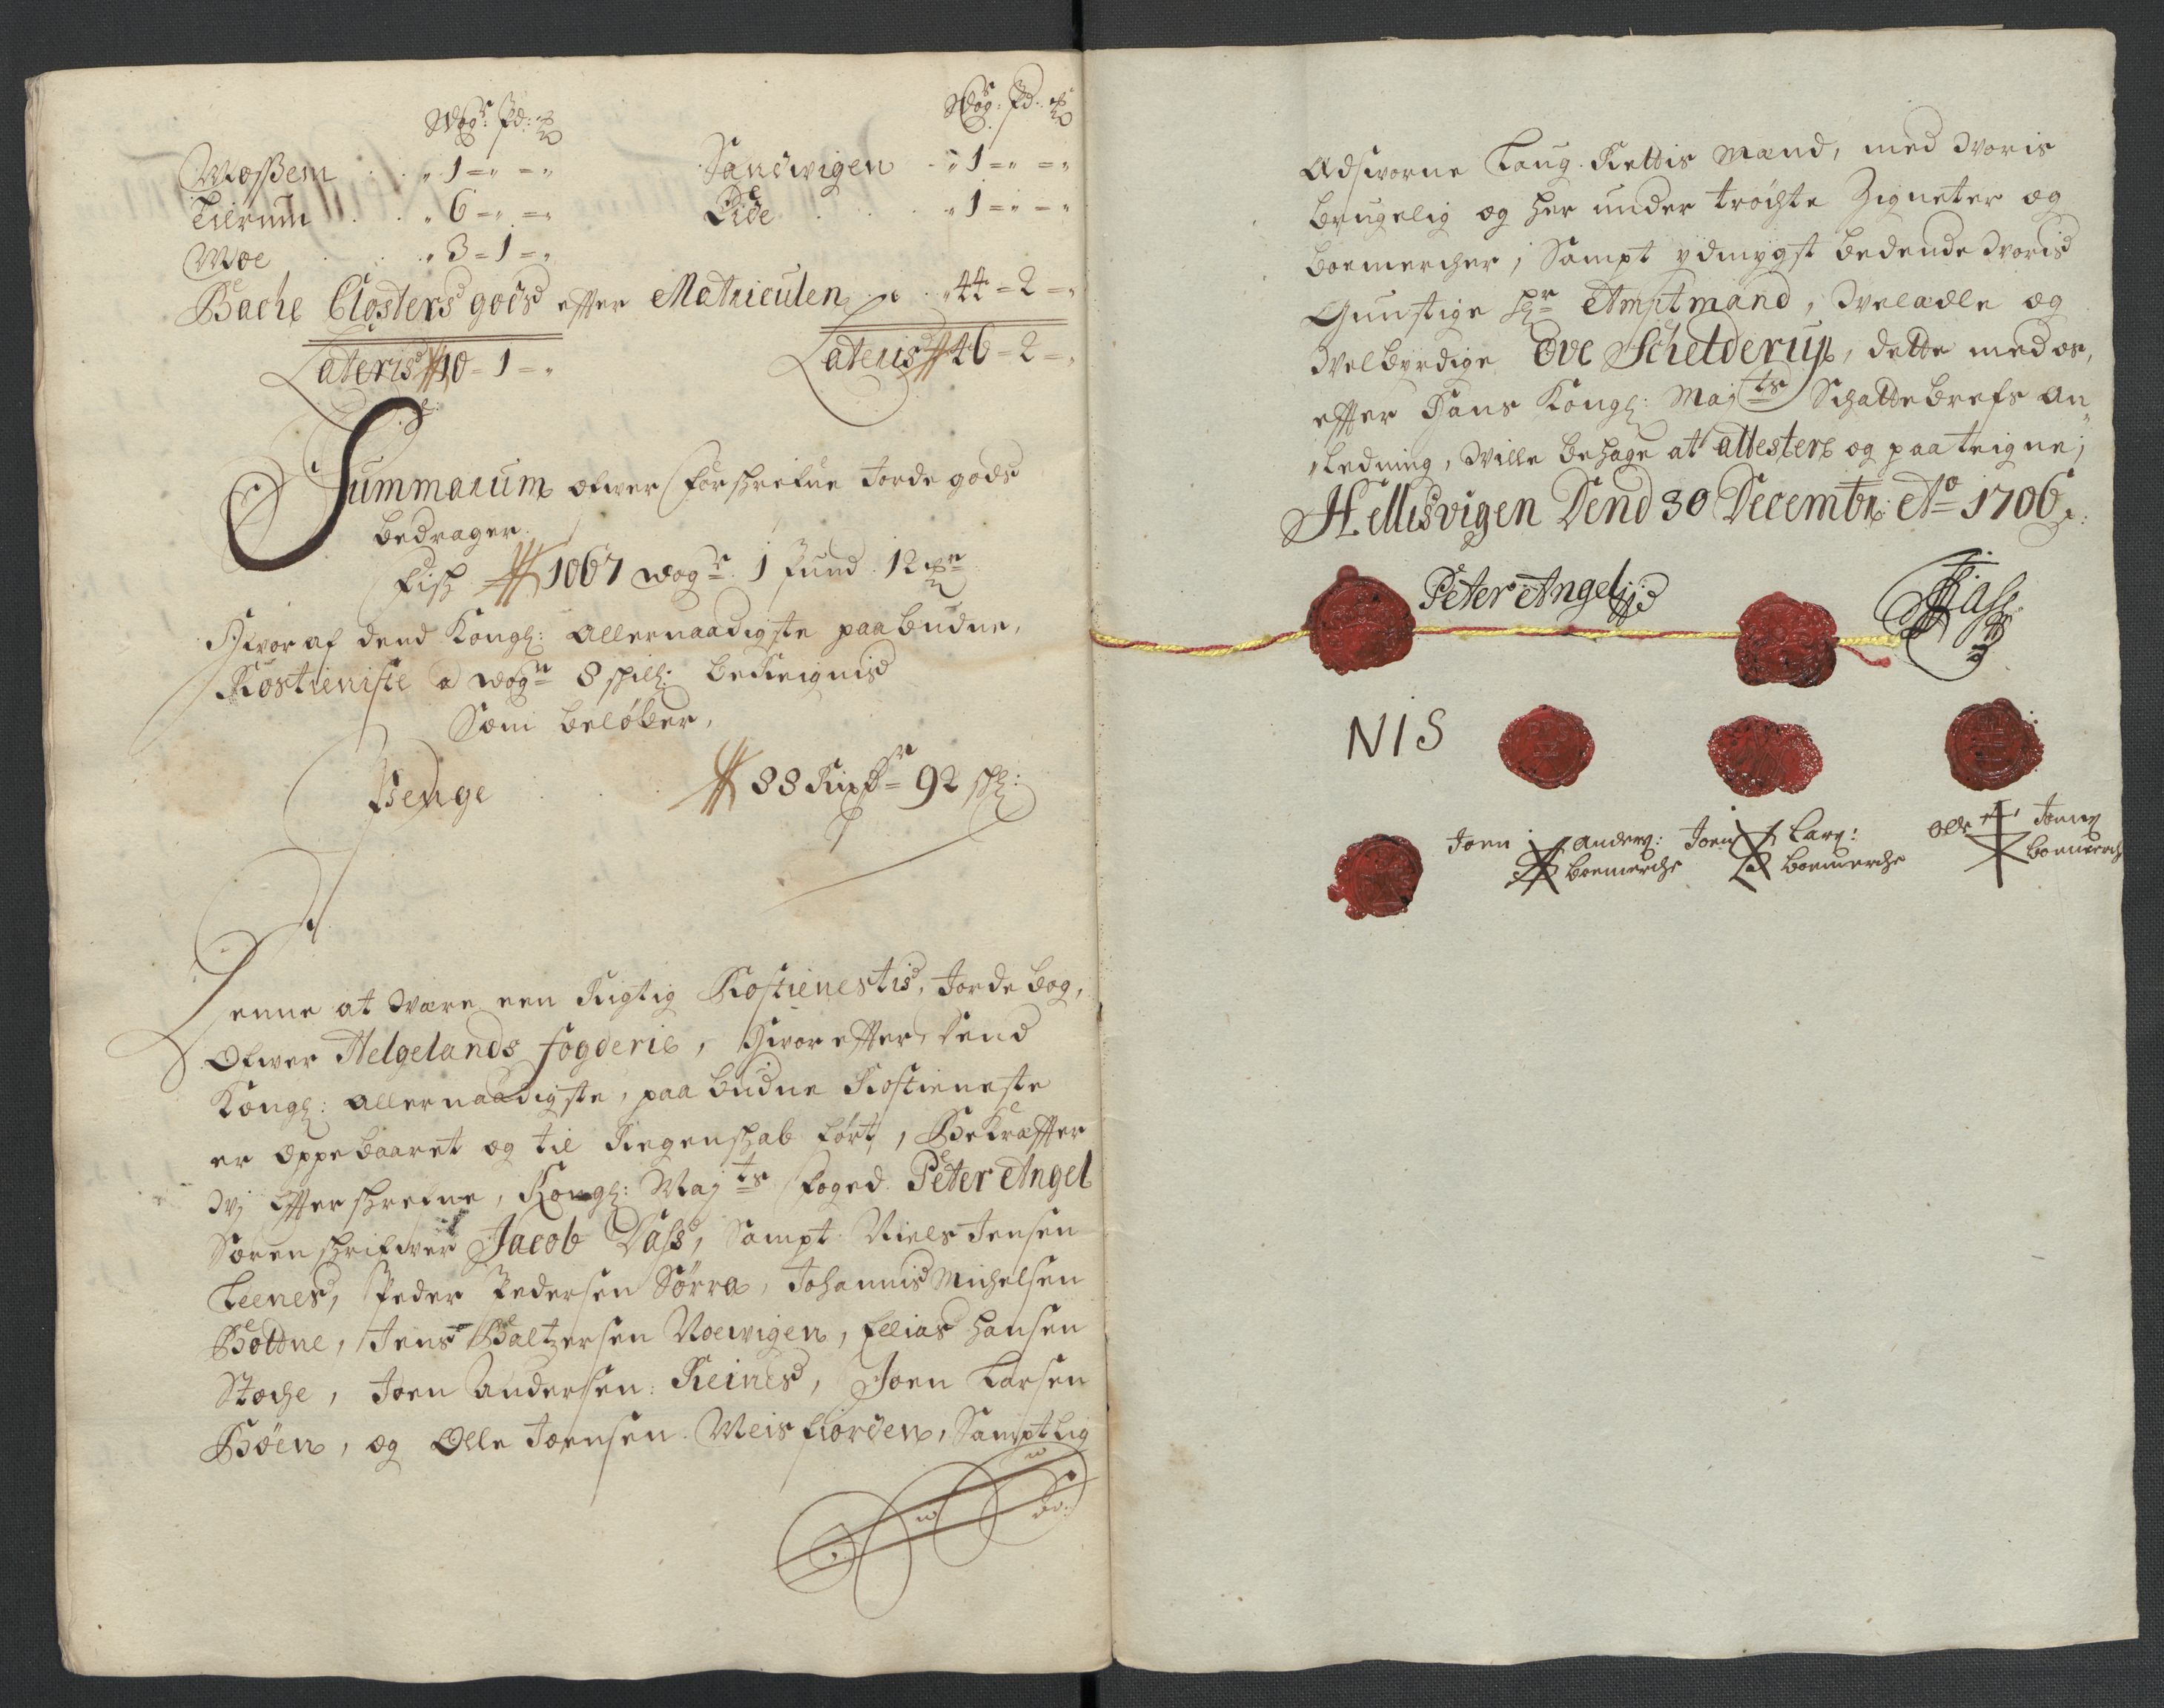 Wogr: Pd: ℔
Mossem . . " 1 = " = "
Tierum . . " 6 = " = "
Moe . . " 3 = 1 = "
Wogr: Pd: ℔
Sandwigen . " 1 = " = "
Lide . . . " 1 = " = "
Bache Closters gods effter Matriculen . . 44 = 2 = "
Lateris 10 = 1 = "
Lateris 46 = 2 = "
Summarum ofwer forschrefne Jordegods
bedrager
Fisch 1067 wogr 1 Pund 12 ℔r
Hvoraf dend Kongl: allernaadigste paabudne,
Rostieniste a wogn 8 schill: bereignis
Som beløber,
Penge . . 88 Rixdr 92 sch:
Denne at være een Rigtig Rostienestis Jordebog,
Ofwer Helgelands fogderie, Hvoreffter dend
Kongl: allernaadigste, paabudne Rostieneste
er oppebaaret og til Regenschab ført, Bekræffter
Wj Effterschrefne, Kongl: Majts foged Peter Angel
Sorenschrifwer Jacob Dass, Sampt Niels Jensen
Leenes, Peder Pedersen Sörra, Johannis Michelsen
Bottne, Jens Baltzersen Noewigen, Ellias Hansen
Stoche, Joen Andersen Reines, Joen Larsen
Böen, og Olle Joensen Meisfiorden, Samptlig
Edsvorne Laug-Rettis Mænd, med Woris
brugelig og her under tröchte Zigneter og
boemercher, Sampt ydmygst bedende Woris
Gunstige Hr Amptmand, Welædle og
Welbyrdige Ove Schelderup, dette med os,
effter Hans Kongl: Majts Schattebrefs an„
„ledning, Wille behage at attestere og paateigne,
Hellisvigen Dend 30 Decembr: Ao 1706.
Peter Angell
JDass
NIS
Joen Anders: boemerche
Joen Lars: boemerche
Olle Joens boemerch